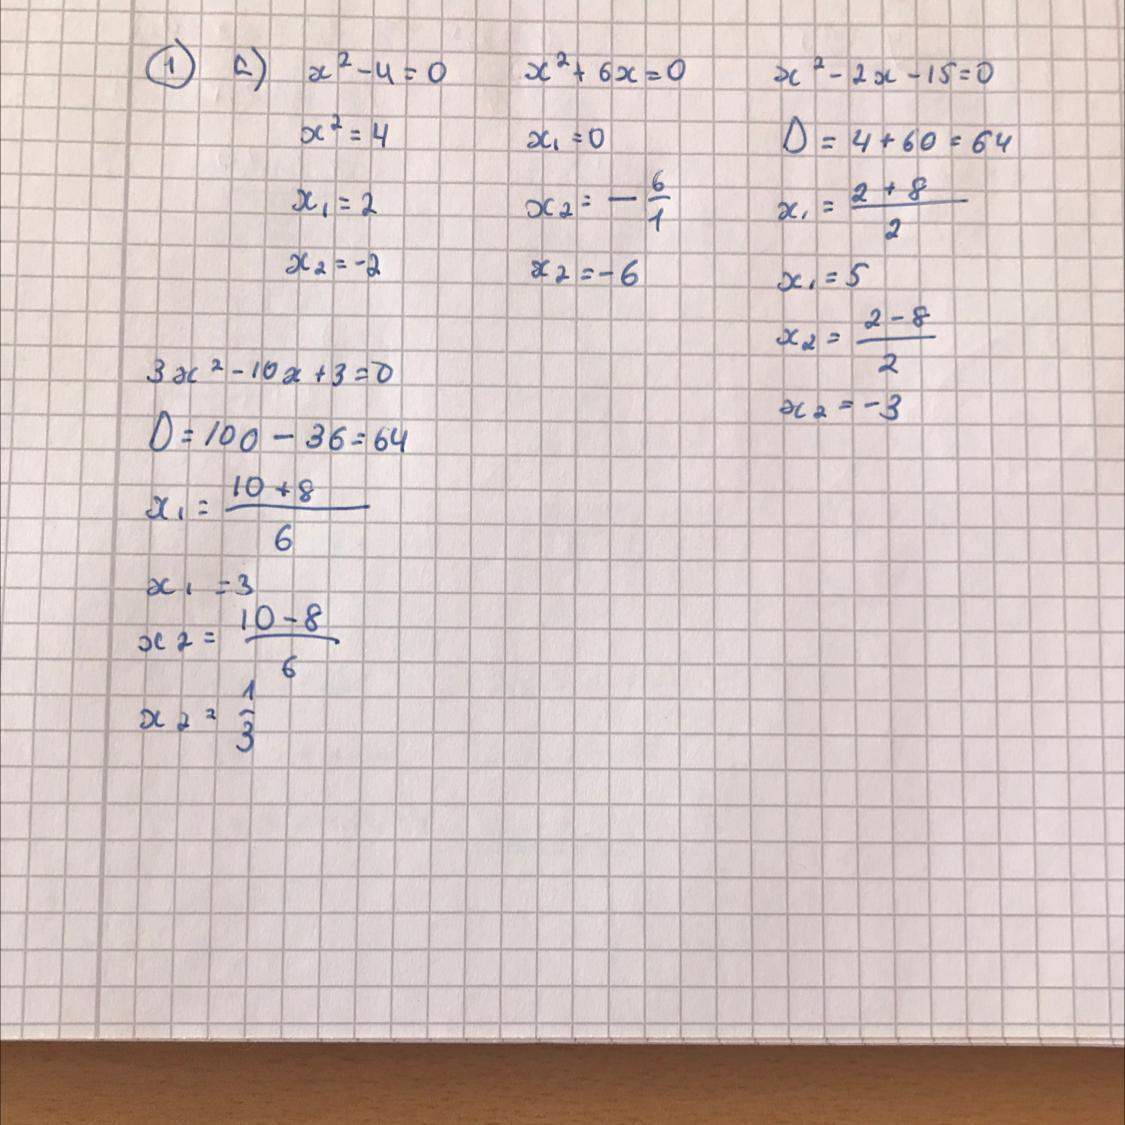 1 a) x² - 4 = 0
x² = 4
x₁ = 2
x₂ = -2
x² + 6x = 0
x₁ = 0
x₂ = - 6/1
x₂ = -6
x² - 2x - 15 = 0
D = 4 + 60 = 64
x₁ = (2 + 8)/2
x₁ = 5
x₂ = (2 - 8)/2
x₂ = -3
3x² - 10x + 3 = 0
D = 100 - 36 = 64
x₁ = (10 + 8)/6
x₁ = 3
x₂ = (10 - 8)/6
x₂ = 1/3